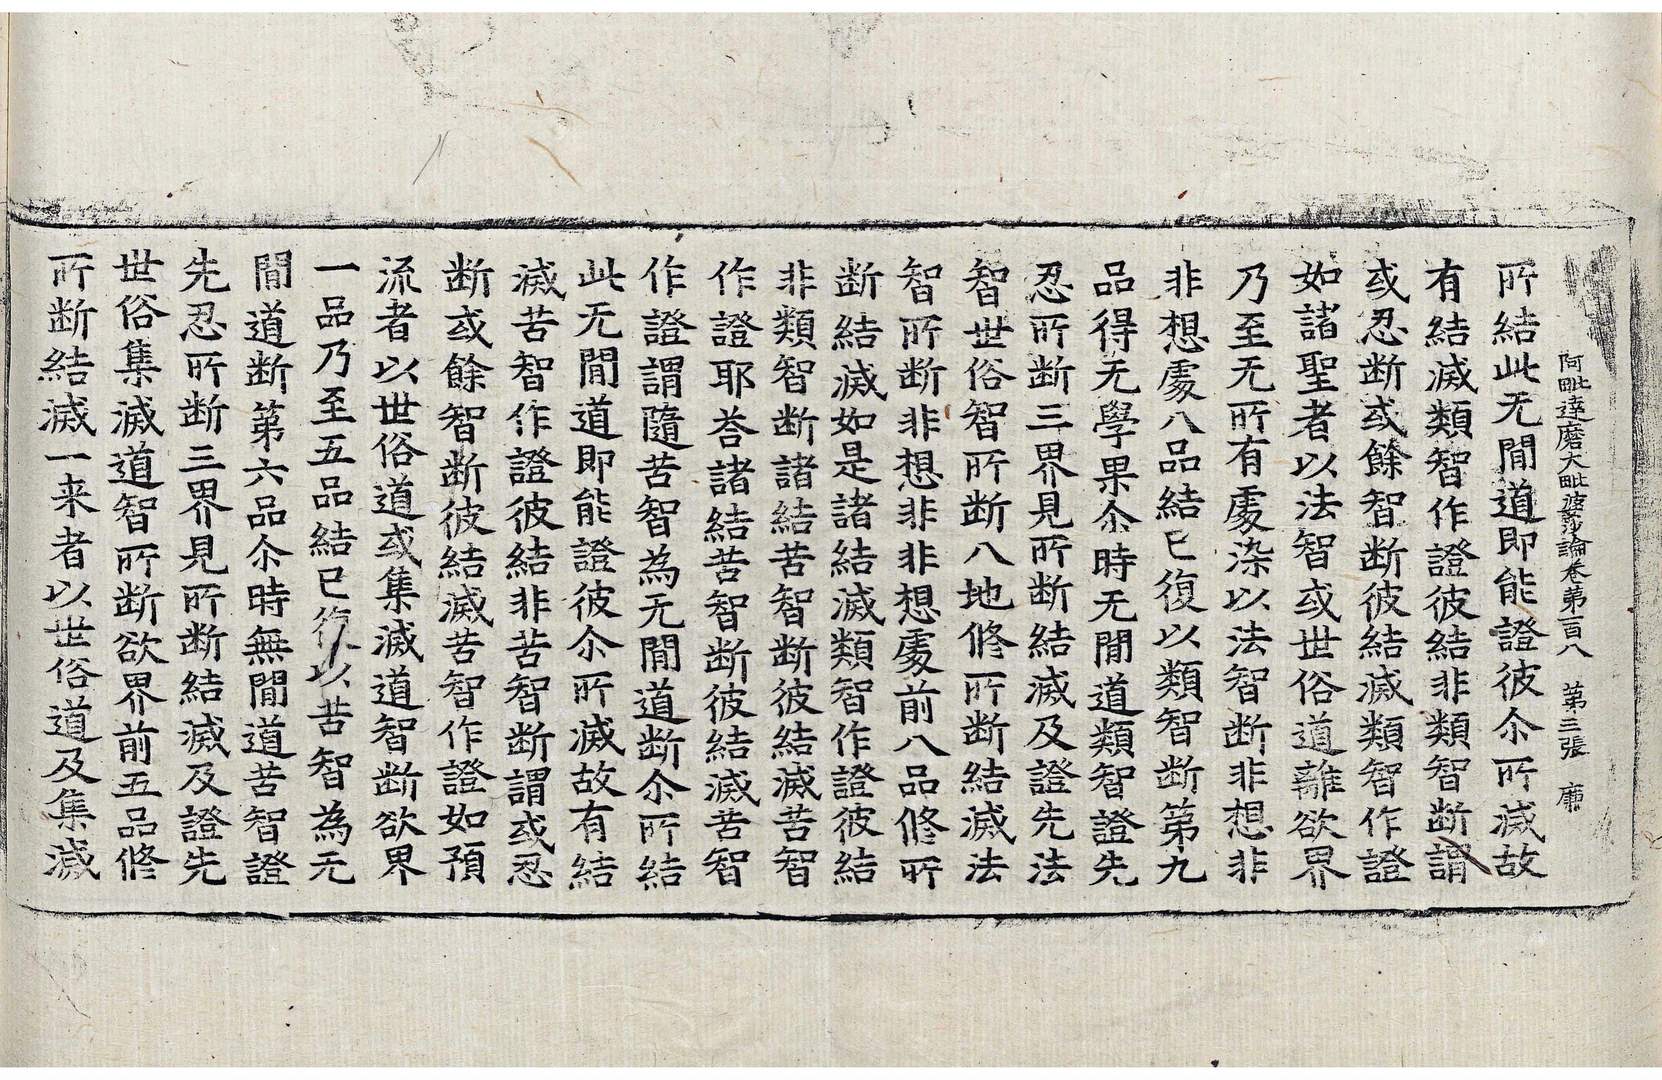 阿毗達磨大毗婆沙論卷第百八 第三張 廉
所結此无閒道即能證彼尒所滅故
有結滅類智作證彼結非類智断謂
或忍断或餘智断彼結滅類智作證
如諸聖者以法智或世俗道離欲界
乃至无所有處染以法智断非想非
非想處八品結已復以類智断第九
品得无學果尒時无閒道類智證先
忍所断三界見所断結滅及證先法
智世俗智所断八地修所断結滅法
智所断非想非非想處前八品修所
断結滅如是諸結滅類智作證彼結
非類智断諸結苦智断彼結滅苦智
作證耶荅諸結苦智断彼結滅苦智
作證謂隨苦智為无閒道断尒所結
此无閒道即能證彼尒所滅故有結
滅苦智作證彼結非苦智断謂或忍
断或餘智断彼結滅苦智作證如預
流者以世俗道或集滅道智断欲界
一品乃至五品結已復以苦智為无
閒道断第六品尒時無閒道苦智證
先忍所断三界見所断結滅及證先
世俗集滅道智所断欲界前五品修
所断結滅一来者以世俗道及集滅